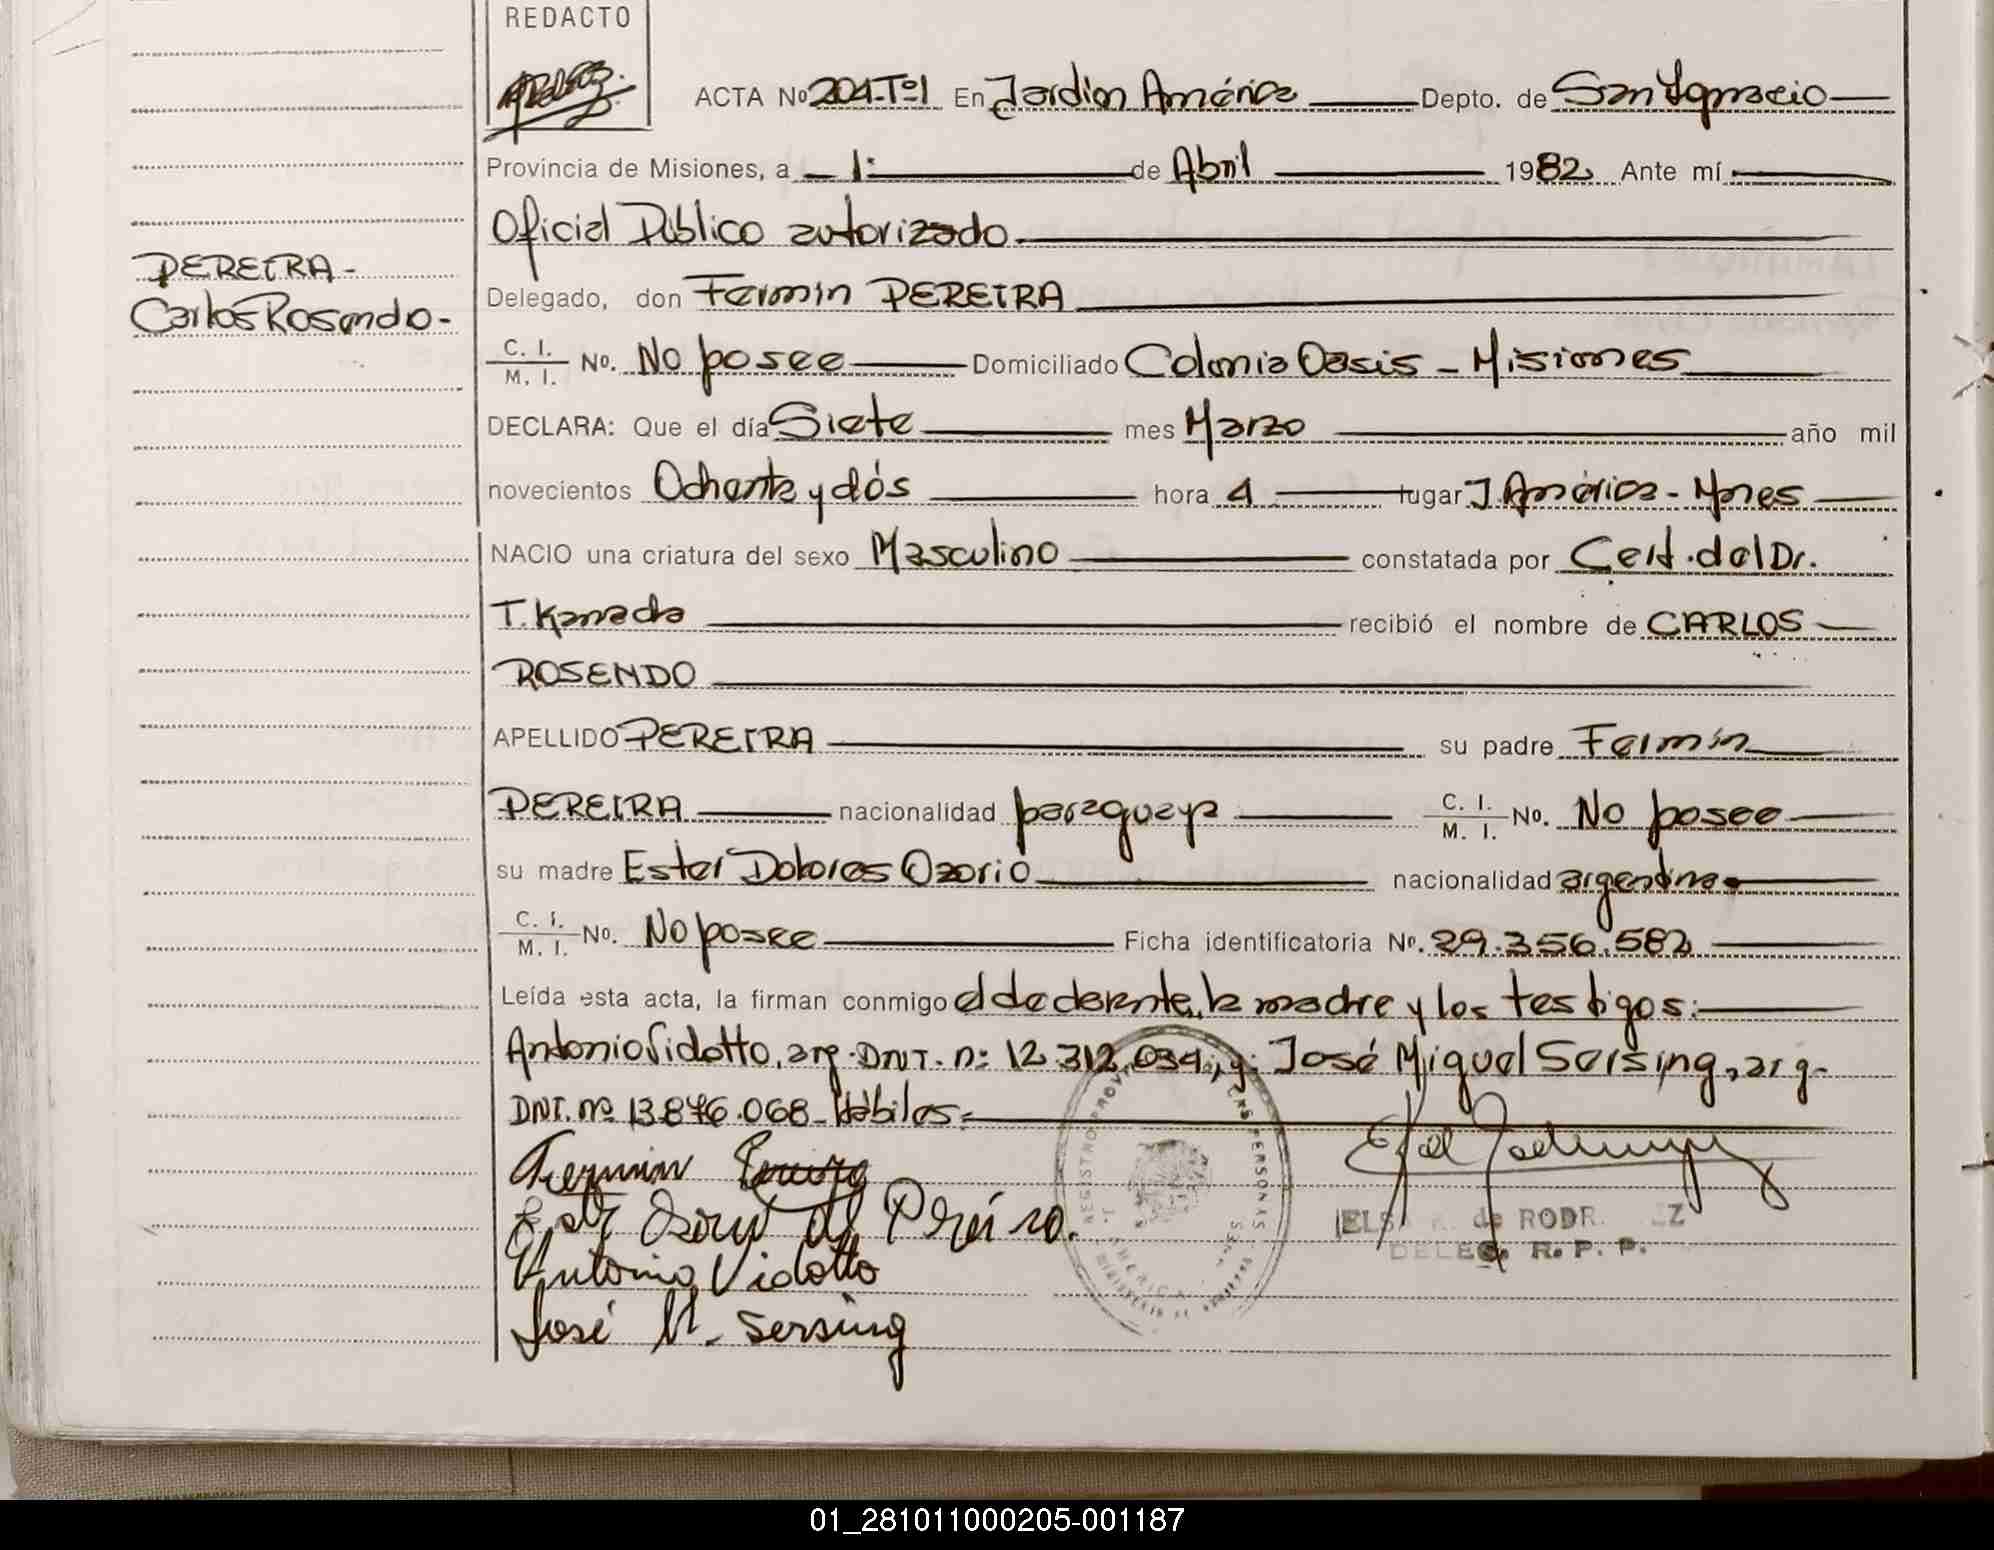 REDACTO
ACTA Nº 204-Tº1 En Jardin América Depto. de San Ignacio
Provincia de Misiones, a 1: de Abril 1982 Ante mí
Oficial Público autorizado.
PEREIRA-
Carlos Rosendo-
Delegado, don Fermin PEREIRA
C. I. / M. I. Nº. No posee Domiciliado Colonia Oasis - Misiones
DECLARA: Que el día Siete mes Marzo año mil
novecientos Ochenta y dós hora 4 lugar J. América - Mnes
NACIO una criatura del sexo Masculino constatada por Cert. del Dr.
T. Kanada recibió el nombre de CARLOS
ROSENDO
APELLIDO PEREIRA su padre Fermín
PEREIRA nacionalidad paraguaya C. I. / M. I. Nº. No posee
su madre Ester Dolores Ozorio nacionalidad argentina.
C. I. / M. I. Nº. No posee Ficha identificatoria Nº. 29.356.582
Leída esta acta, la firman conmigo el declarante, la madre y los testigos:
Antonio Vidotto, arg. DNI. n: 12.312.034, y: José Miguel Sersing, arg-
DNI. nº 13.846.068- Hábiles-
Fermin Pereira
Ozorio de Pereira.
Antonio Vidotto
José M. Sersing
ELS de RODR EZ
DELEG. R. P. P.
01_281011000205-001187